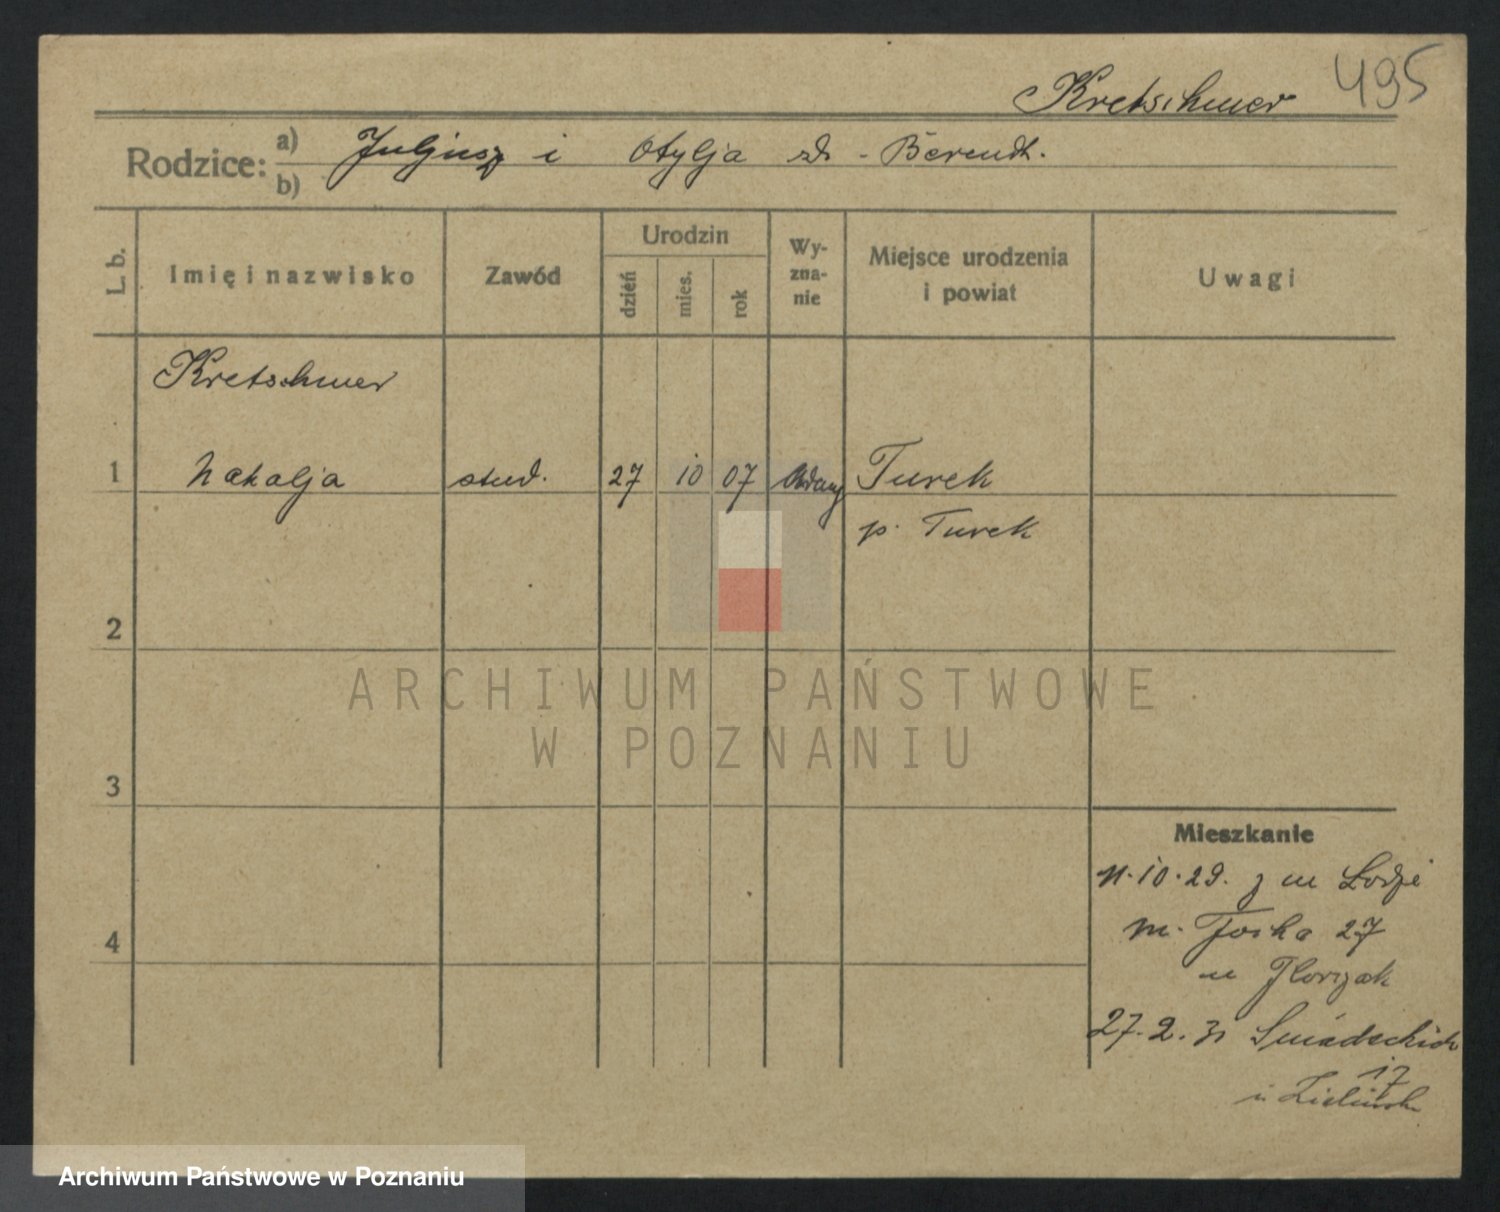 Kretschmer 495
Rodzice: a) Juljusz i Otylja zd. Berendt.
b)
L. b.
Imię i nazwisko
Zawód
Urodzin
dzień
mies.
rok
Wy-
zna-
nie
Miejsce urodzenia
i powiat
Uwagi
Kretschmer
1 Natalja stud. 27 10 07 Turek
p. Turek
2
3
4
Mieszkanie
11.10.29. z m Łodzi
m. Focha 27
u Florczak
27.2.31 Śniadeckich
17
u Zielińsk
ARCHIWUM PAŃSTWOWE
W POZNANIU
Archiwum Państwowe w Poznaniu